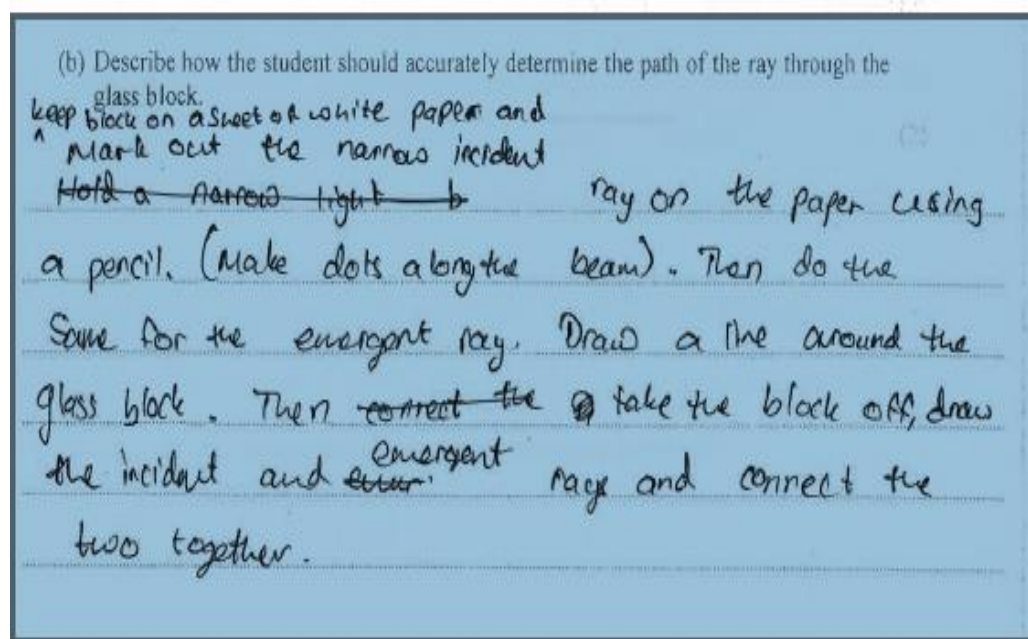 (b) Describe how the student should accurately determine the path of the ray through the
glass block.
keep block on a sheet of white paper and
^ Mark out the narrow incident
Hold a narrow light b ray on the paper using
a pencil. (Make dots along the beam). Then do the
Same for the emergent ray. Draw a line around the
glass block. Then connect the take the block off, draw
the incident and emergent rays and connect the
two together.